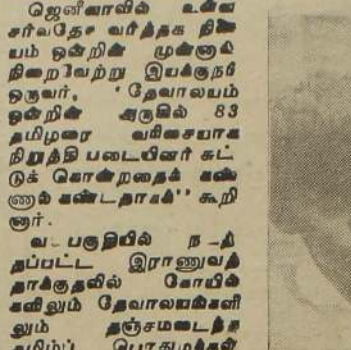 ஜெனீவாவில் உள்ள
சர்வதேச வர்த்தக நிலை
யம் ஒன்றின் முன்னாள்
நிறைவேற்று இயக்குநர்
ஒருவர், 'தேவாலயம்
ஒன்றின் அருகில் 83
தமிழரை வரிசையாக
நிறுத்தி படையினர் சுட்
டுக் கொன்றதைக் கண்
ணால் கண்டதாகக்'' கூறி
னார்.
வட பகுதியில் நடத்
தப்பட்ட இராணுவத்
தாக்குதலில் கோயில்
களிலும் தேவாலயங்களி
லும் தஞ்சமடைந்த
தமிழ்ப் பொதுமக்கள்